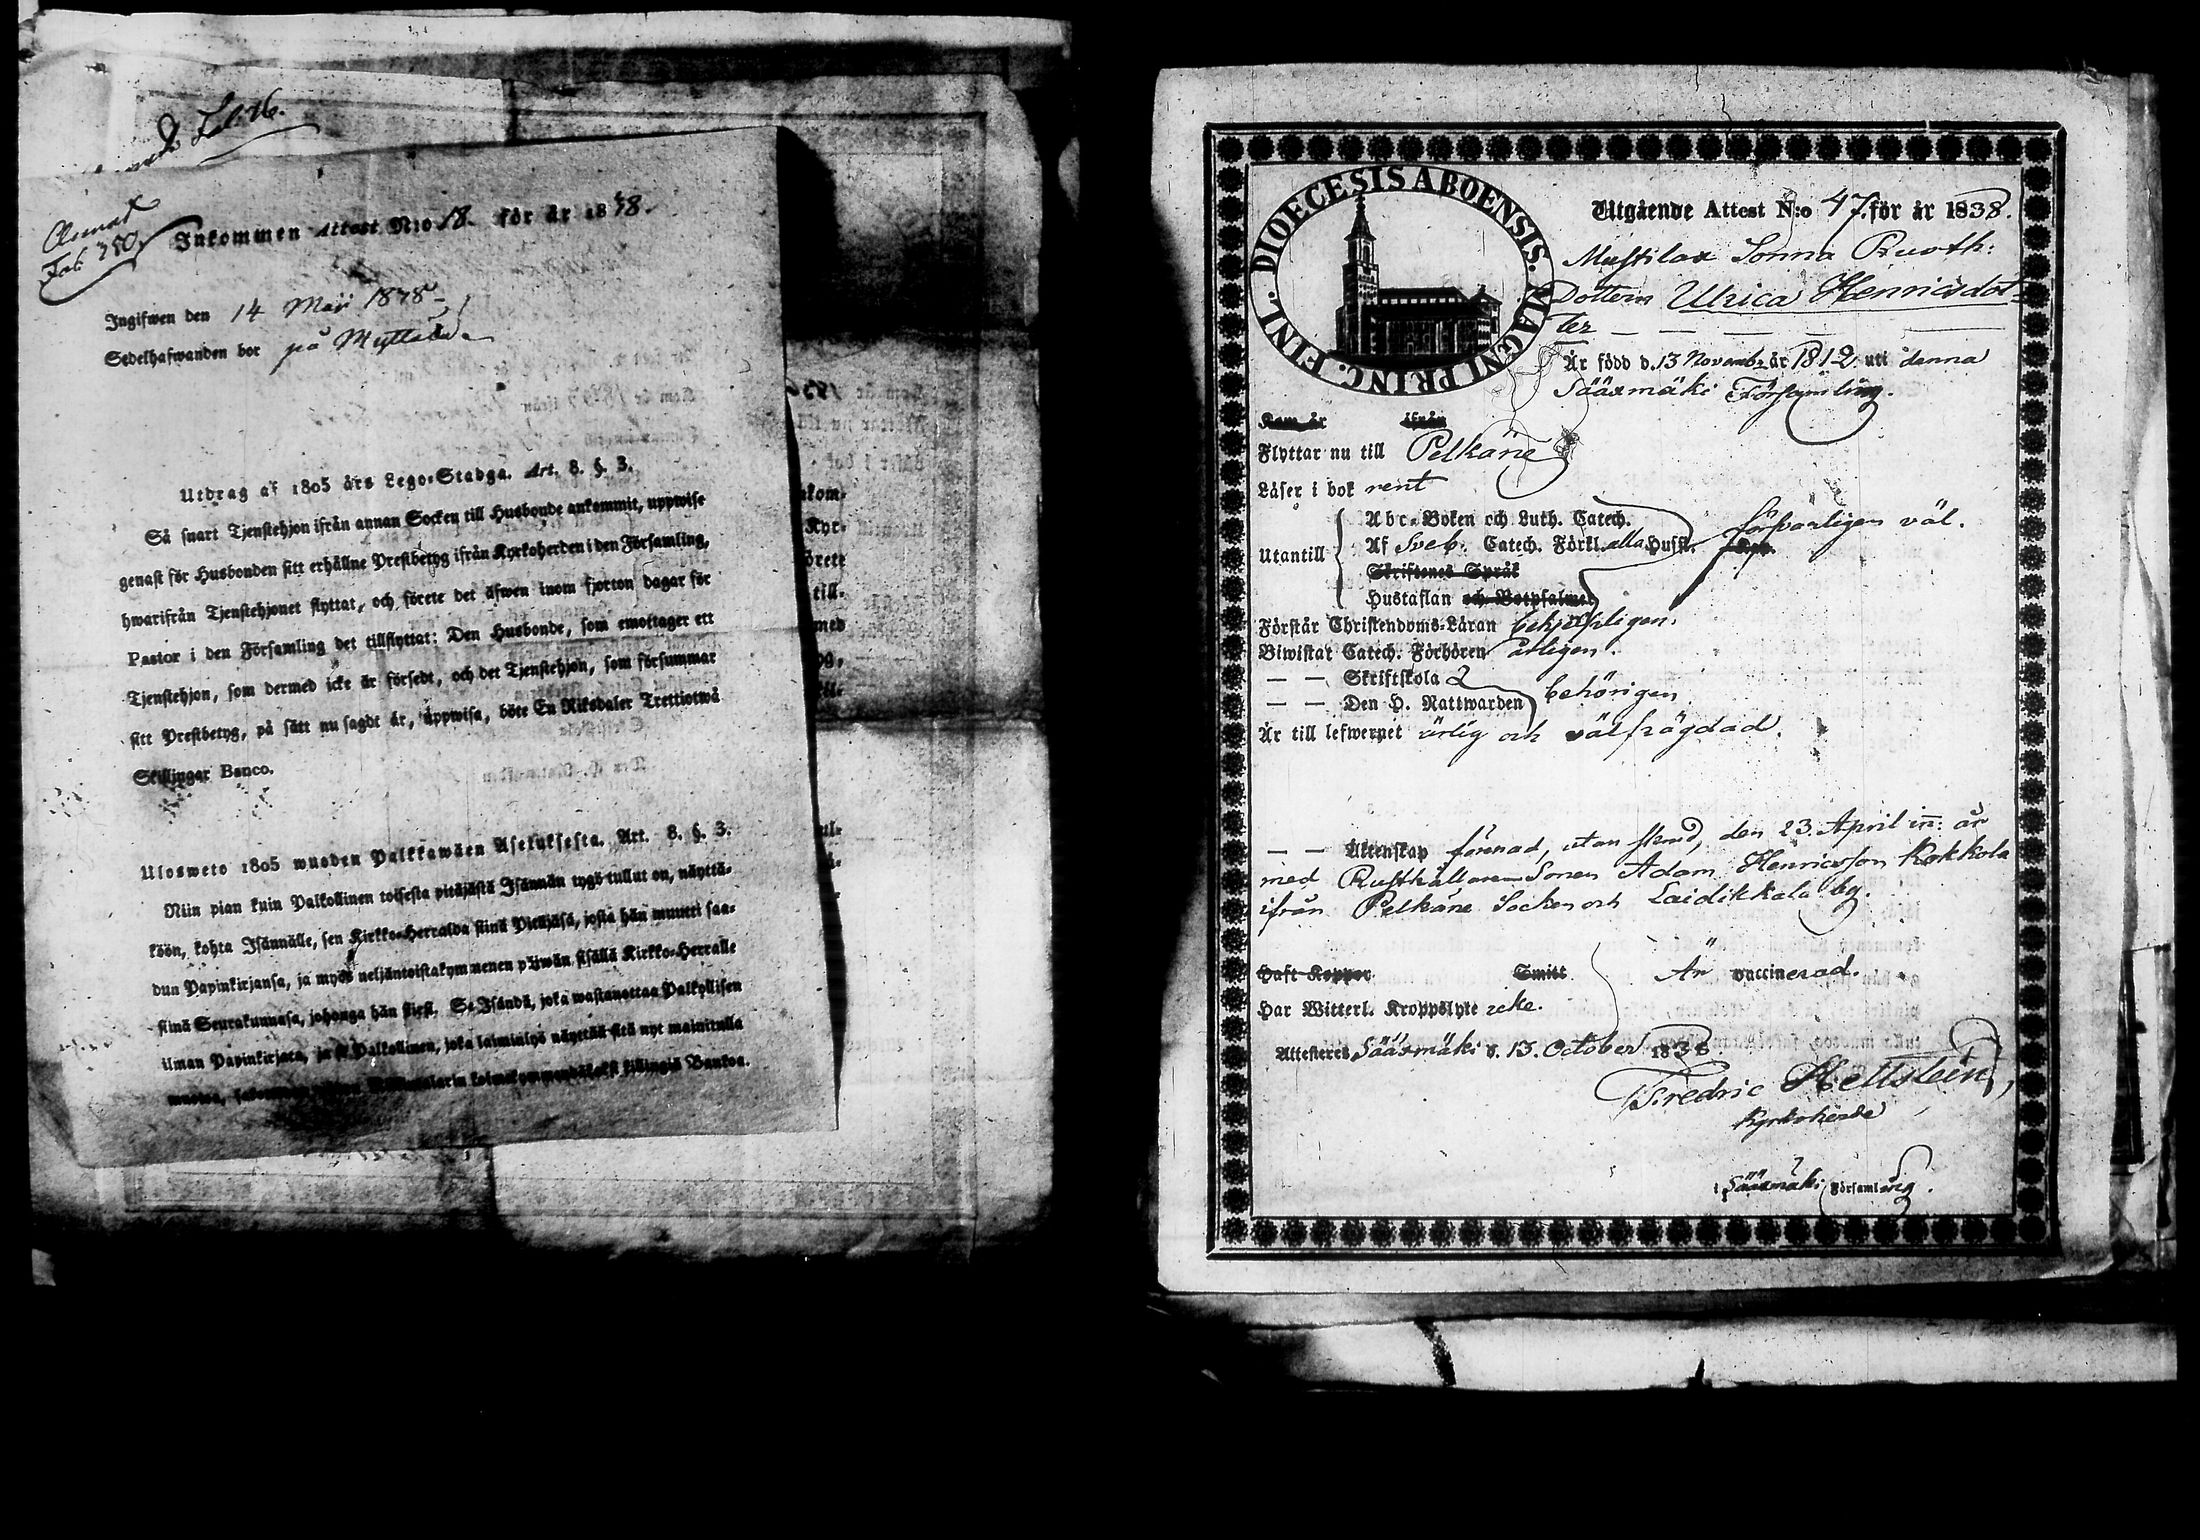 Fol. 76.
Fol. 250
Inkommen Attest N:o 18. för år 1838.
Ingifwen den 14 Maji 1838
Sedelhafwanden bor på
Utdrag af 1805 års Lego-Stadga. Art. 8. §. 3.
Så snart Tjenstehjon ifrån annan Socken till Husbonde ankommit, uppwise
genast för Husbonden sitt erhållne Prestbetyg ifrån Kyrkoherden i den Församling,
hwarifrån Tjenstehjonet flyttat, och förete det äfwen inom fjorton dagar för
Pastor i den Församling det tillflyttat: Den Husbonde, som emottager ett
Tjenstehjon, som dermed icke är försedt, och det Tjenstehjon, som försummar
sitt Prestbetyg, på sätt nu sagdt är, uppwisa, böte En Riksdaler Trettiotwå
Skillingar Banco.
Ulosweto 1805 wuoden Palkkawäen Asetuksesta. Art. 8. §. 3.
Niin pian kuin Palkollinen toisesta pitäjästä Isännän tygö tullut on, näyttä-
köön, kohta Isännälle, sen Kirkko-Herralda siinä Pitäjäsä, josta hän muutti saa-
dun Papinkirjansa, ja myös neljäntoistakymmenen päiwän sisällä Kirkko-Herralle
siinä Seurakunnasa, johonga hän siirsi. Se Isändä, joka wastanottaa Palkollisen
ilman Papinkirjata, ja se Palkollinen, joka laiminlyö näyttää sitä nyt mainitulla
kolmekymmendäkaksi killingiä Bankoa.
DIOECESIS ABOENSIS. MAGNI PRINC. FINL.
Utgående Attest N:o 47. för år 1838.
Mustilax Sonna Rusth:
Dottern Ulrica Henricsdot-
ter — — — —
Är född d. 13 Novembr år 1812 uti denna
Sääxmäki Församling.
Kom år ifrån
Flyttar nu till Pelkäne
Läser i bok rent
Utantill
Abc-Boken och Luth. Catech.
Af Sveb. Catech. Förkl. alla Hufst. försvarligen väl.
Skriftenes Språk
Hustaflan och Botpsalmer
Förstår Christendoms-Läran behjelpligen.
Biwistat Catech. Förhören årligen.
— — Skriftskola 2
— — Den H. Nattwarden behörigen
Är till lefwernet ärlig och välfrägdad.
— — Äktenskap den 23. April in: år
med Rusthållare-Sonen Adam Henricsson Kokkola
ifrån Pelkäne Socken och Laidikkala by.
Haft Koppor Smitt Är vaccinerad.
Har Witterl. Kroppslyte icke.
Attesteres Sääxmäki d. 13. October 1838
Fredric Hellstein,
Kyrkoherde
i Sääxmäki Församling.